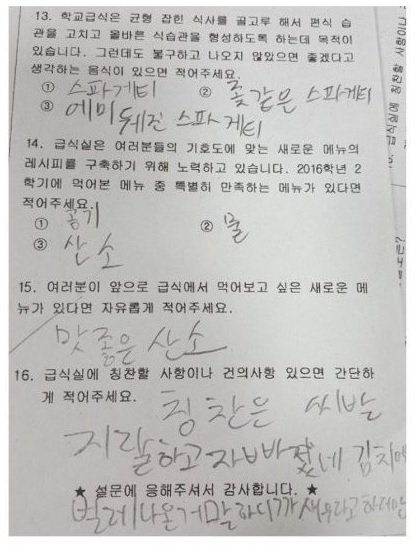 13. 학교급식은 균형 잡힌 식사를 골고루 해서 편식 습
관을 고치고 올바른 식습관을 형성하도록 하는데 목적이
있습니다. 그런데도 불구하고 나오지 않았으면 좋겠다고
생각하는 음식이 있으면 적어주세요.
① 스파게티 ② 좆같은 스파게티
③ 에미 뒈진 스파게티
14. 급식실은 여러분들의 기호도에 맞는 새로운 메뉴의
레시피를 구축하기 위해 노력하고 있습니다. 2016학년 2
학기에 먹어본 메뉴 중 특별히 만족하는 메뉴가 있다면
적어주세요.
① 공기 ② 물
③ 산소
15. 여러분이 앞으로 급식에서 먹어보고 싶은 새로운 메
뉴가 있다면 자유롭게 적어주세요.
맛좋은 산소
16. 급식실에 칭찬할 사항이나 건의사항 있으면 간단하
게 적어주세요.
칭찬은 씨발
지랄하고 자빠졌네 김치에
★ 설문에 응해주셔서 감사합니다. ★
벌레나온거 말하니까 새우라고 하더만
급식실에 칭찬할 사항이나